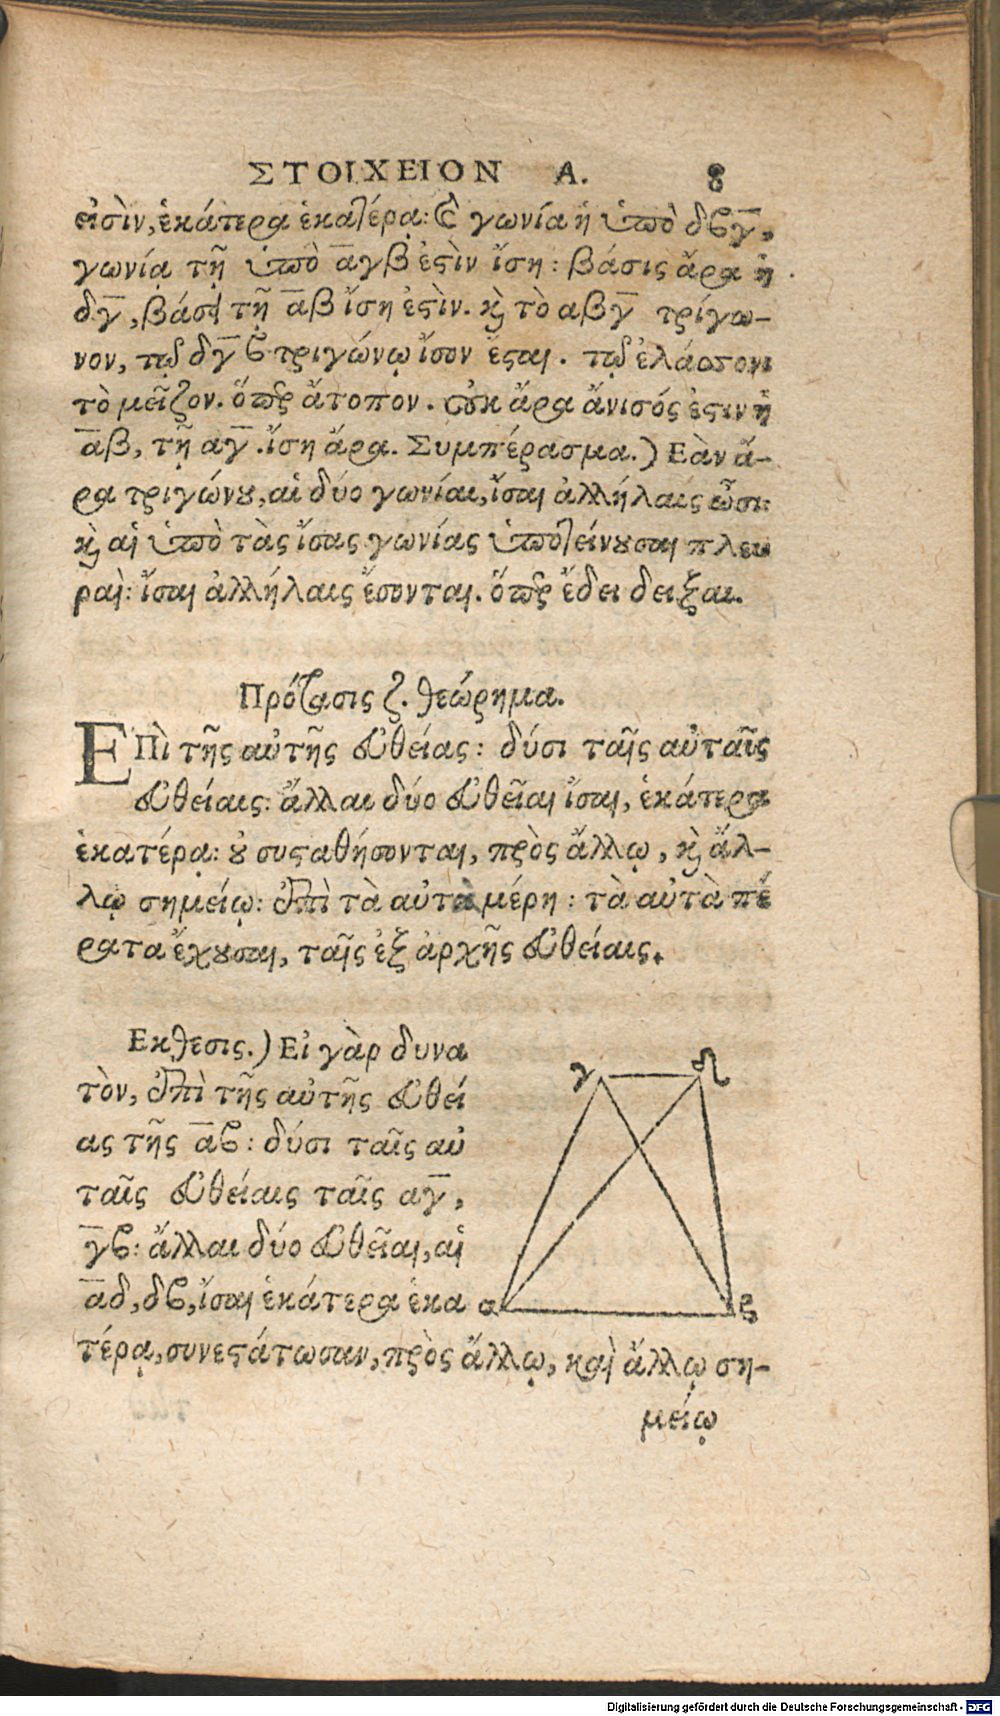 ΣΤΟΙΧΕΙΟΝ Α. 8
εἰσὶν, ἑκάτερα ἑκατέρᾳ: καὶ γωνία ἡ ὑπὸ δβγ,
γωνίᾳ τῇ ὑπὸ αγβ ἐστὶν ἴση: βάσις ἄρα ἡ
δγ, βάσει τῇ αβ ἴση ἐστὶν. καὶ τὸ αβγ τρίγω-
νον, τῷ δγβ τριγώνῳ ἴσον ἔσται. τῷ ἐλάσσονι
τὸ μεῖζον. ὅπερ ἄτοπον. οὐκ ἄρα ἄνισός ἐστιν ἡ
αβ, τῇ αγ. ἴση ἄρα. Συμπέρασμα.) Εὰν ἄ-
ρα τριγώνου, αἱ δύο γωνίαι, ἴσαι ἀλλήλαις ὦσι:
καὶ αἱ ὑπὸ τὰς ἴσας γωνίας ὑποτείνουσαι πλευ
ραὶ: ἴσαι ἀλλήλαις ἔσονται. ὅπερ ἔδει δειξαι.
Πρότασις ζ. θεώρημα.
ΕΠὶ τῆς αὐτῆς εὐθείας: δύσι ταῖς αὐταῖς
εὐθείαις: ἄλλαι δύο εὐθεῖαι ἴσαι, ἑκάτερα
ἑκατέρᾳ: οὐ συσταθήσονται, πρὸς ἄλλῳ, καὶ ἄλ-
λῳ σημείῳ: ἐπὶ τὰ αὐτὰ μέρη: τὰ αὐτὰ πέ
ρατα ἔχουσαι, ταῖς ἐξ ἀρχῆς εὐθείαις.
Εκθεσις.) Εἰ γὰρ δυνα
τὸν, ἐπὶ τῆς αὐτῆς εὐθεί
ας τῆς αβ: δύσι ταῖς αὐ
ταῖς εὐθείαις ταῖς αγ,
γβ: ἄλλαι δύο εὐθεῖαι, αἱ
αδ, δβ, ἴσαι ἑκάτερα ἑκα
τέρᾳ, συνεστάτωσαν, πρὸς ἄλλῳ, καὶ ἄλλῳ ση-
μείῳ
γ δ
α β
Digitalisierung gefördert durch die Deutsche Forschungsgemeinschaft - DFG